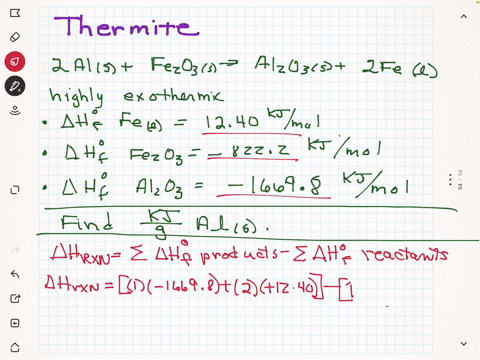 Thermite
2Al(s) + Fe₂O₃(s) → Al₂O₃(s) + 2Fe (l)
highly exothermic
• ΔH°f Fe(l) = 12.40 KJ/mol
• ΔH°f Fe₂O₃ = -822.2 KJ/mol
• ΔH°f Al₂O₃ = -1669.8 KJ/mol
Find KJ/g Al(s).
ΔHRXN = Σ ΔH°f products - Σ ΔH°f reactants
ΔHrxn = [(1)(-1669.8)+(2)(+12.40)] - [1
54 / 54